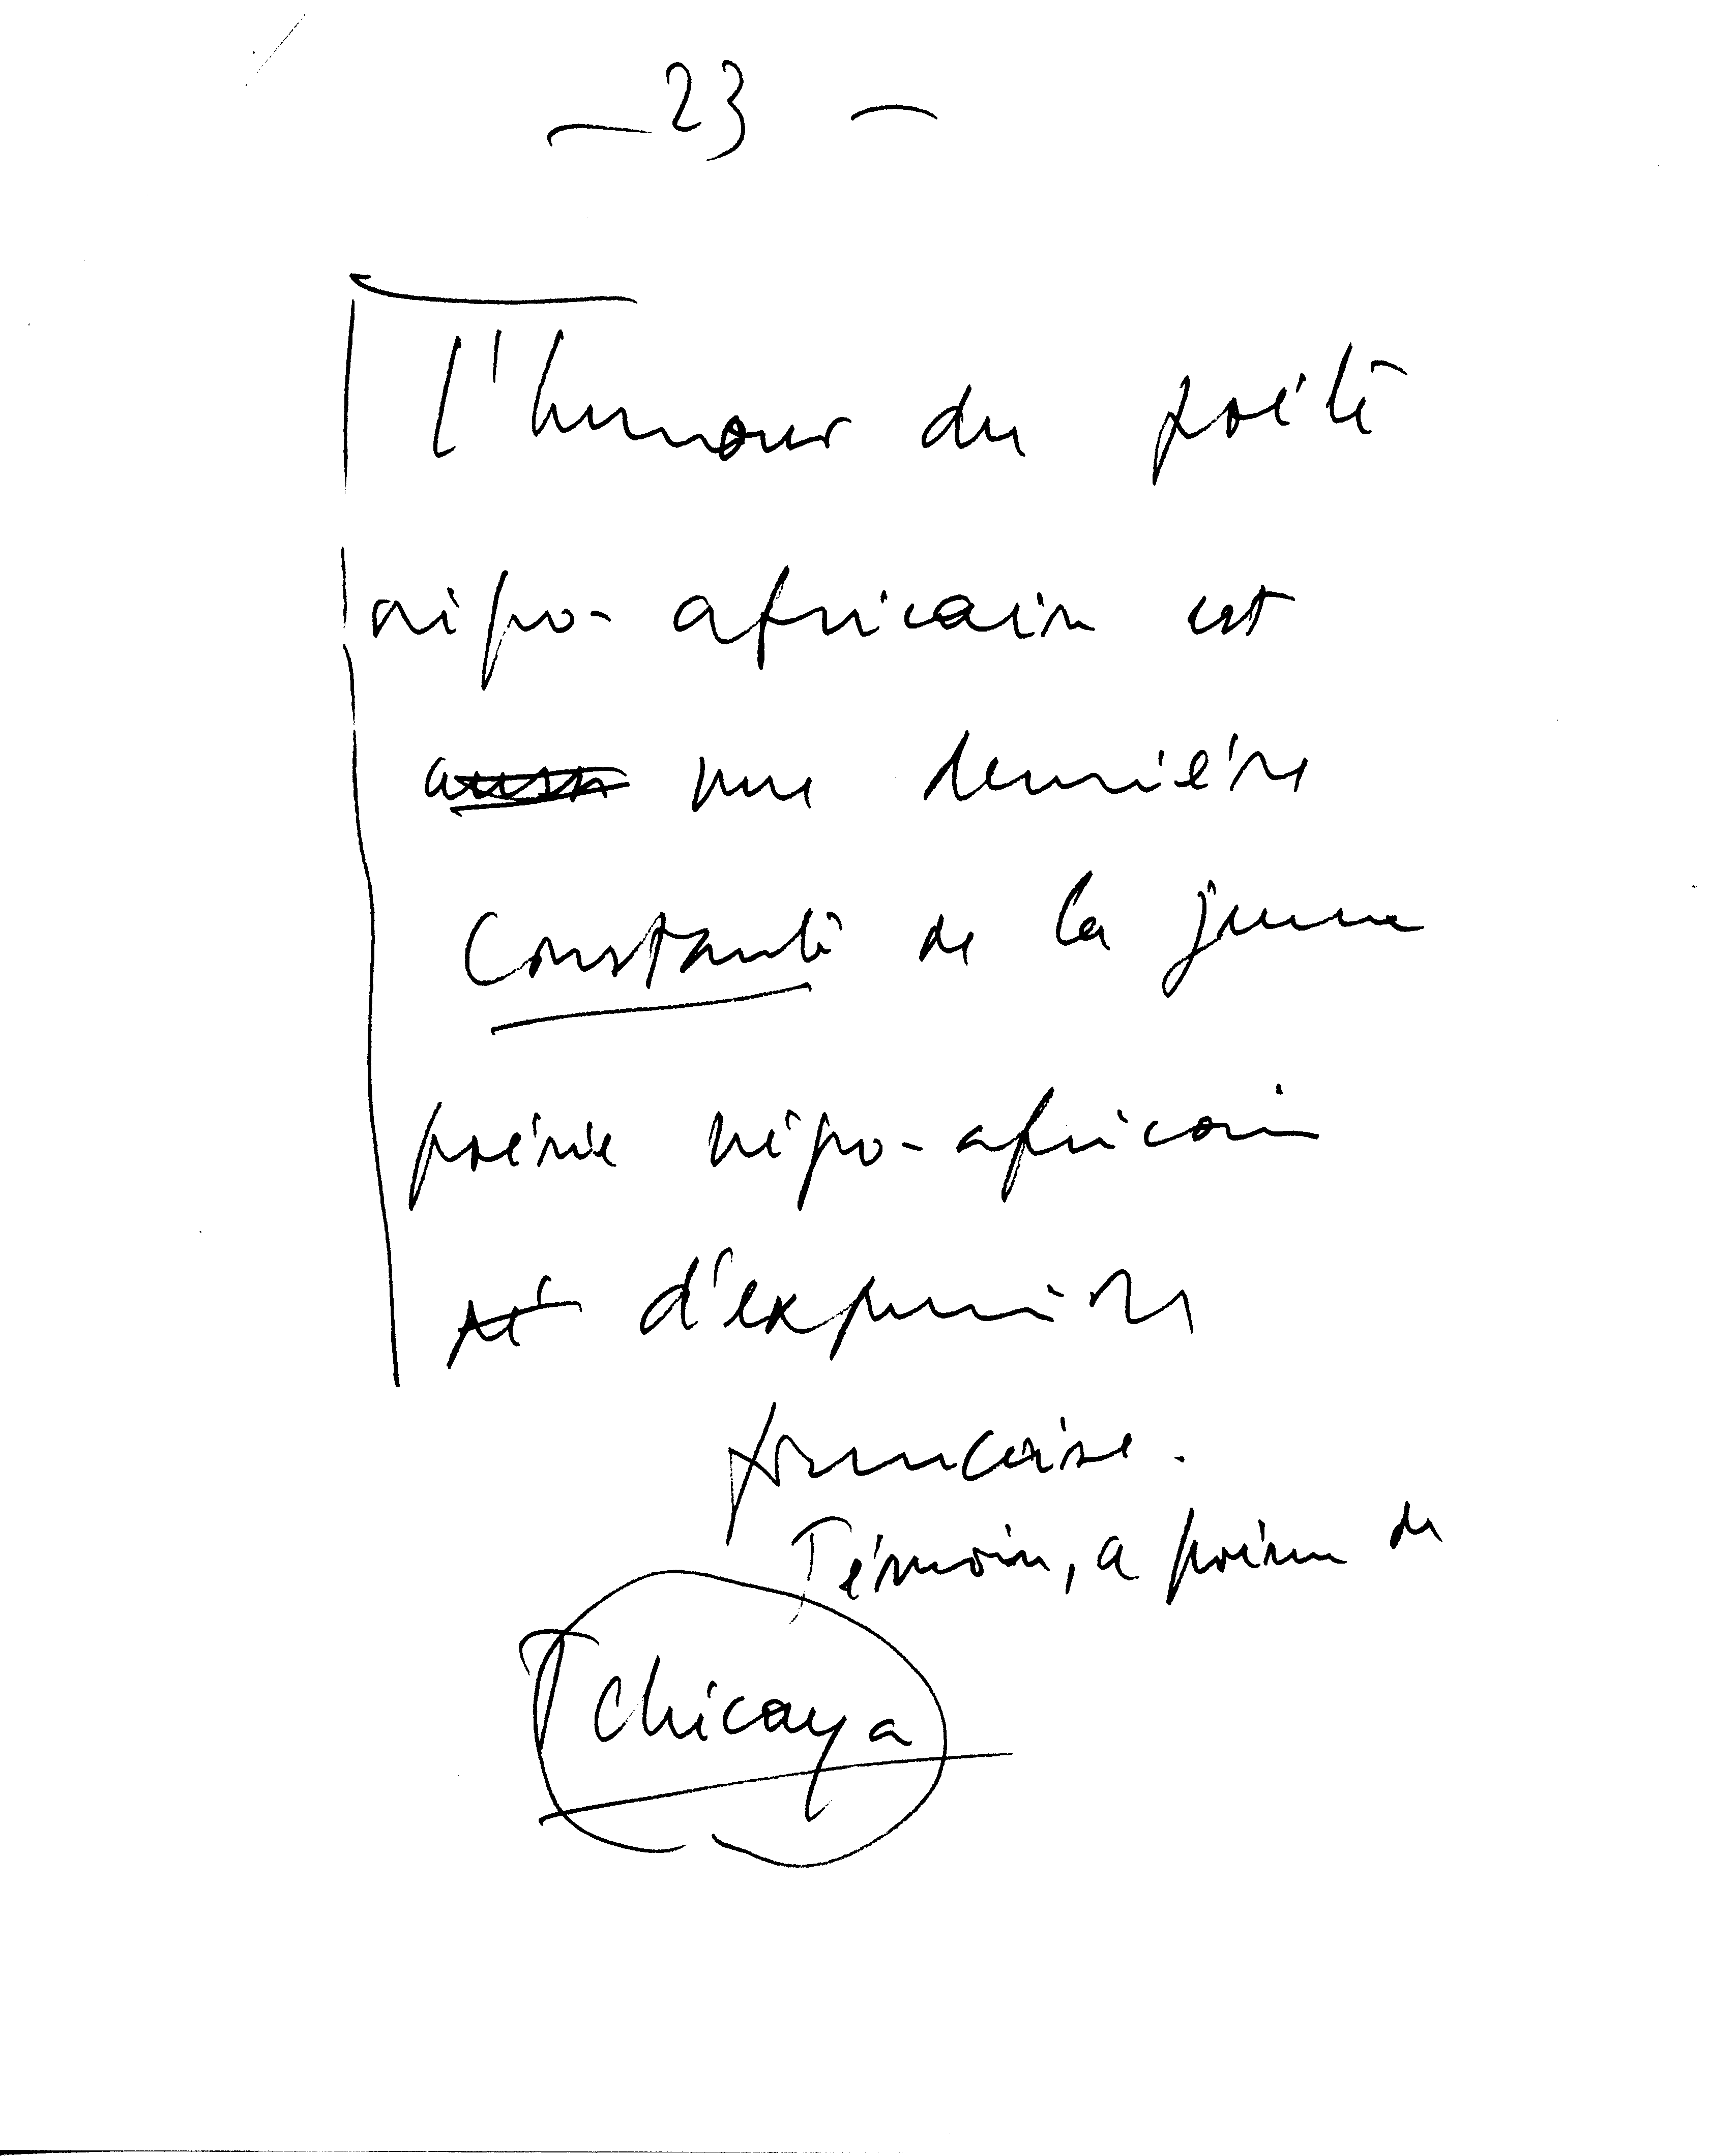 — 23 —
L'humour du poète
négro-africain est
une dernière
constante de la jeune
poésie négro-africaine
d'expression
française.
Témoin, ce poème de
Tchicaya